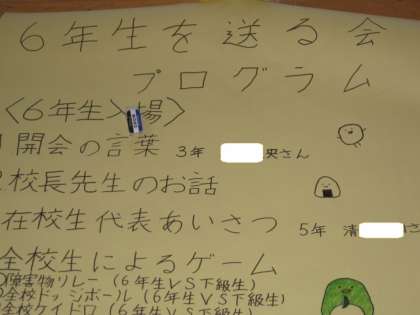 6年生を送る会
プログラム
<6年生入場>
開会の言葉 3年 央さん
校長先生のお話
在校生代表あいさつ 5年 清
全校生によるゲーム
障害物リレー(6年生VS下級生)
全校ドッジボール(6年生VS下級生)
全校ケイドロ(6年生VS下級生)